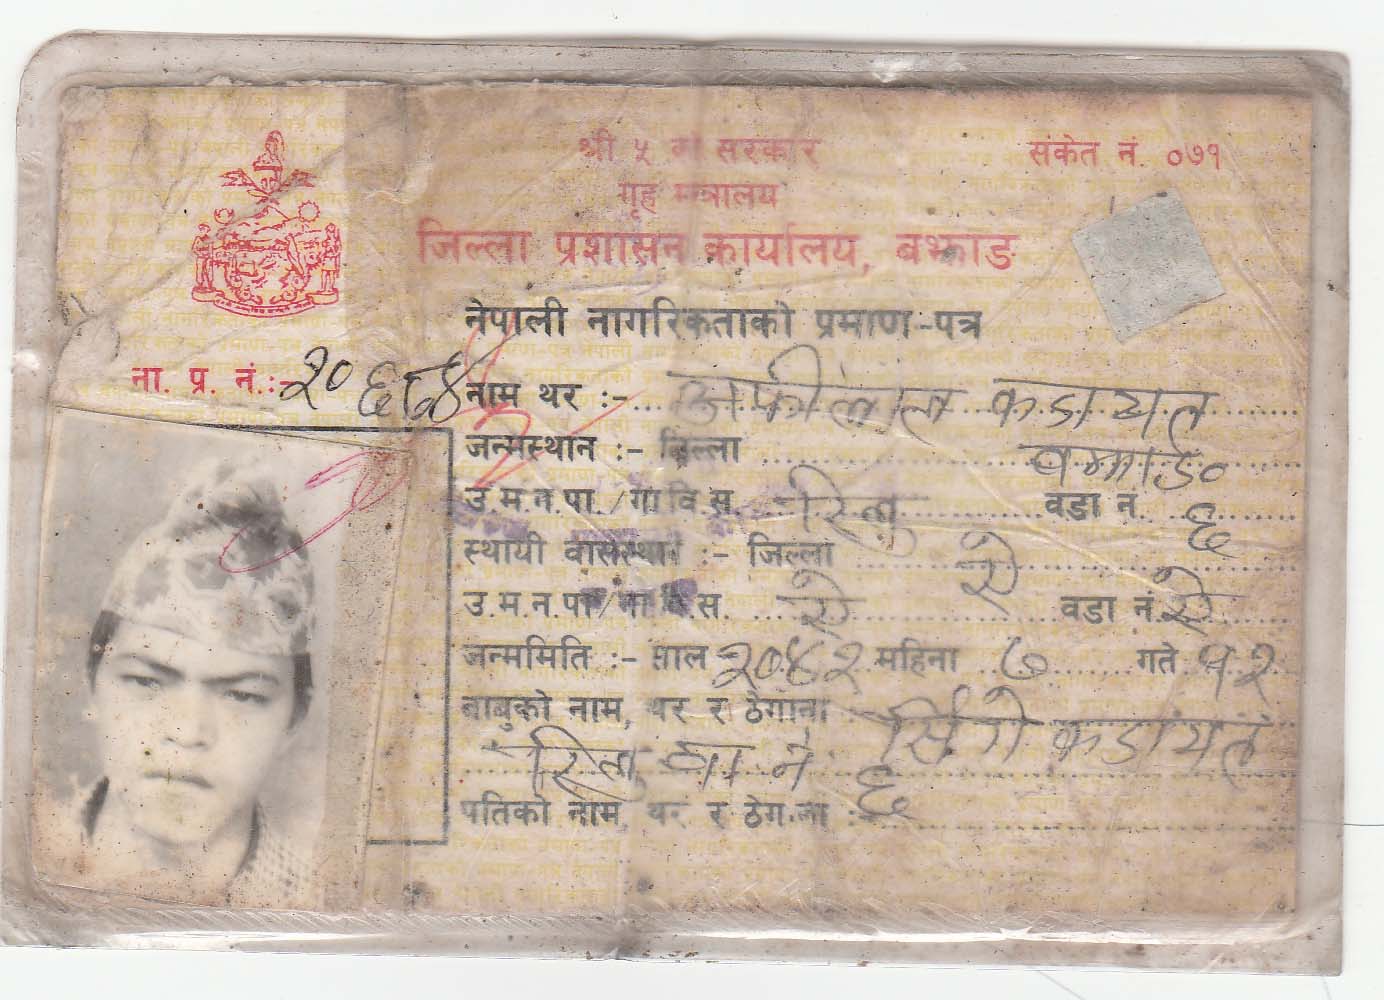 श्री ५ को सरकार
संकेत नं. ०७१
गृह मन्त्रालय
जिल्ला प्रशासन कार्यालय, बझाङ
नेपाली नागरिकताको प्रमाण-पत्र
ना. प्र. नं.:- २०६८४
नाम थर :- कडायत
जन्मस्थान :- जिल्ला बझाङ
उ.म.न.पा./गा.वि.स. रिलु वडा नं. ६
स्थायी वासस्थान :- जिल्ला ऐ
उ.म.न.पा./गा.वि.स. ऐ वडा नं. ऐ
जन्ममिति :- साल २०४२ महिना ७ गते १२
बाबुको नाम, थर र ठेगाना कडायत
रिलु ६
पतिको नाम, थर र ठेगाना :-